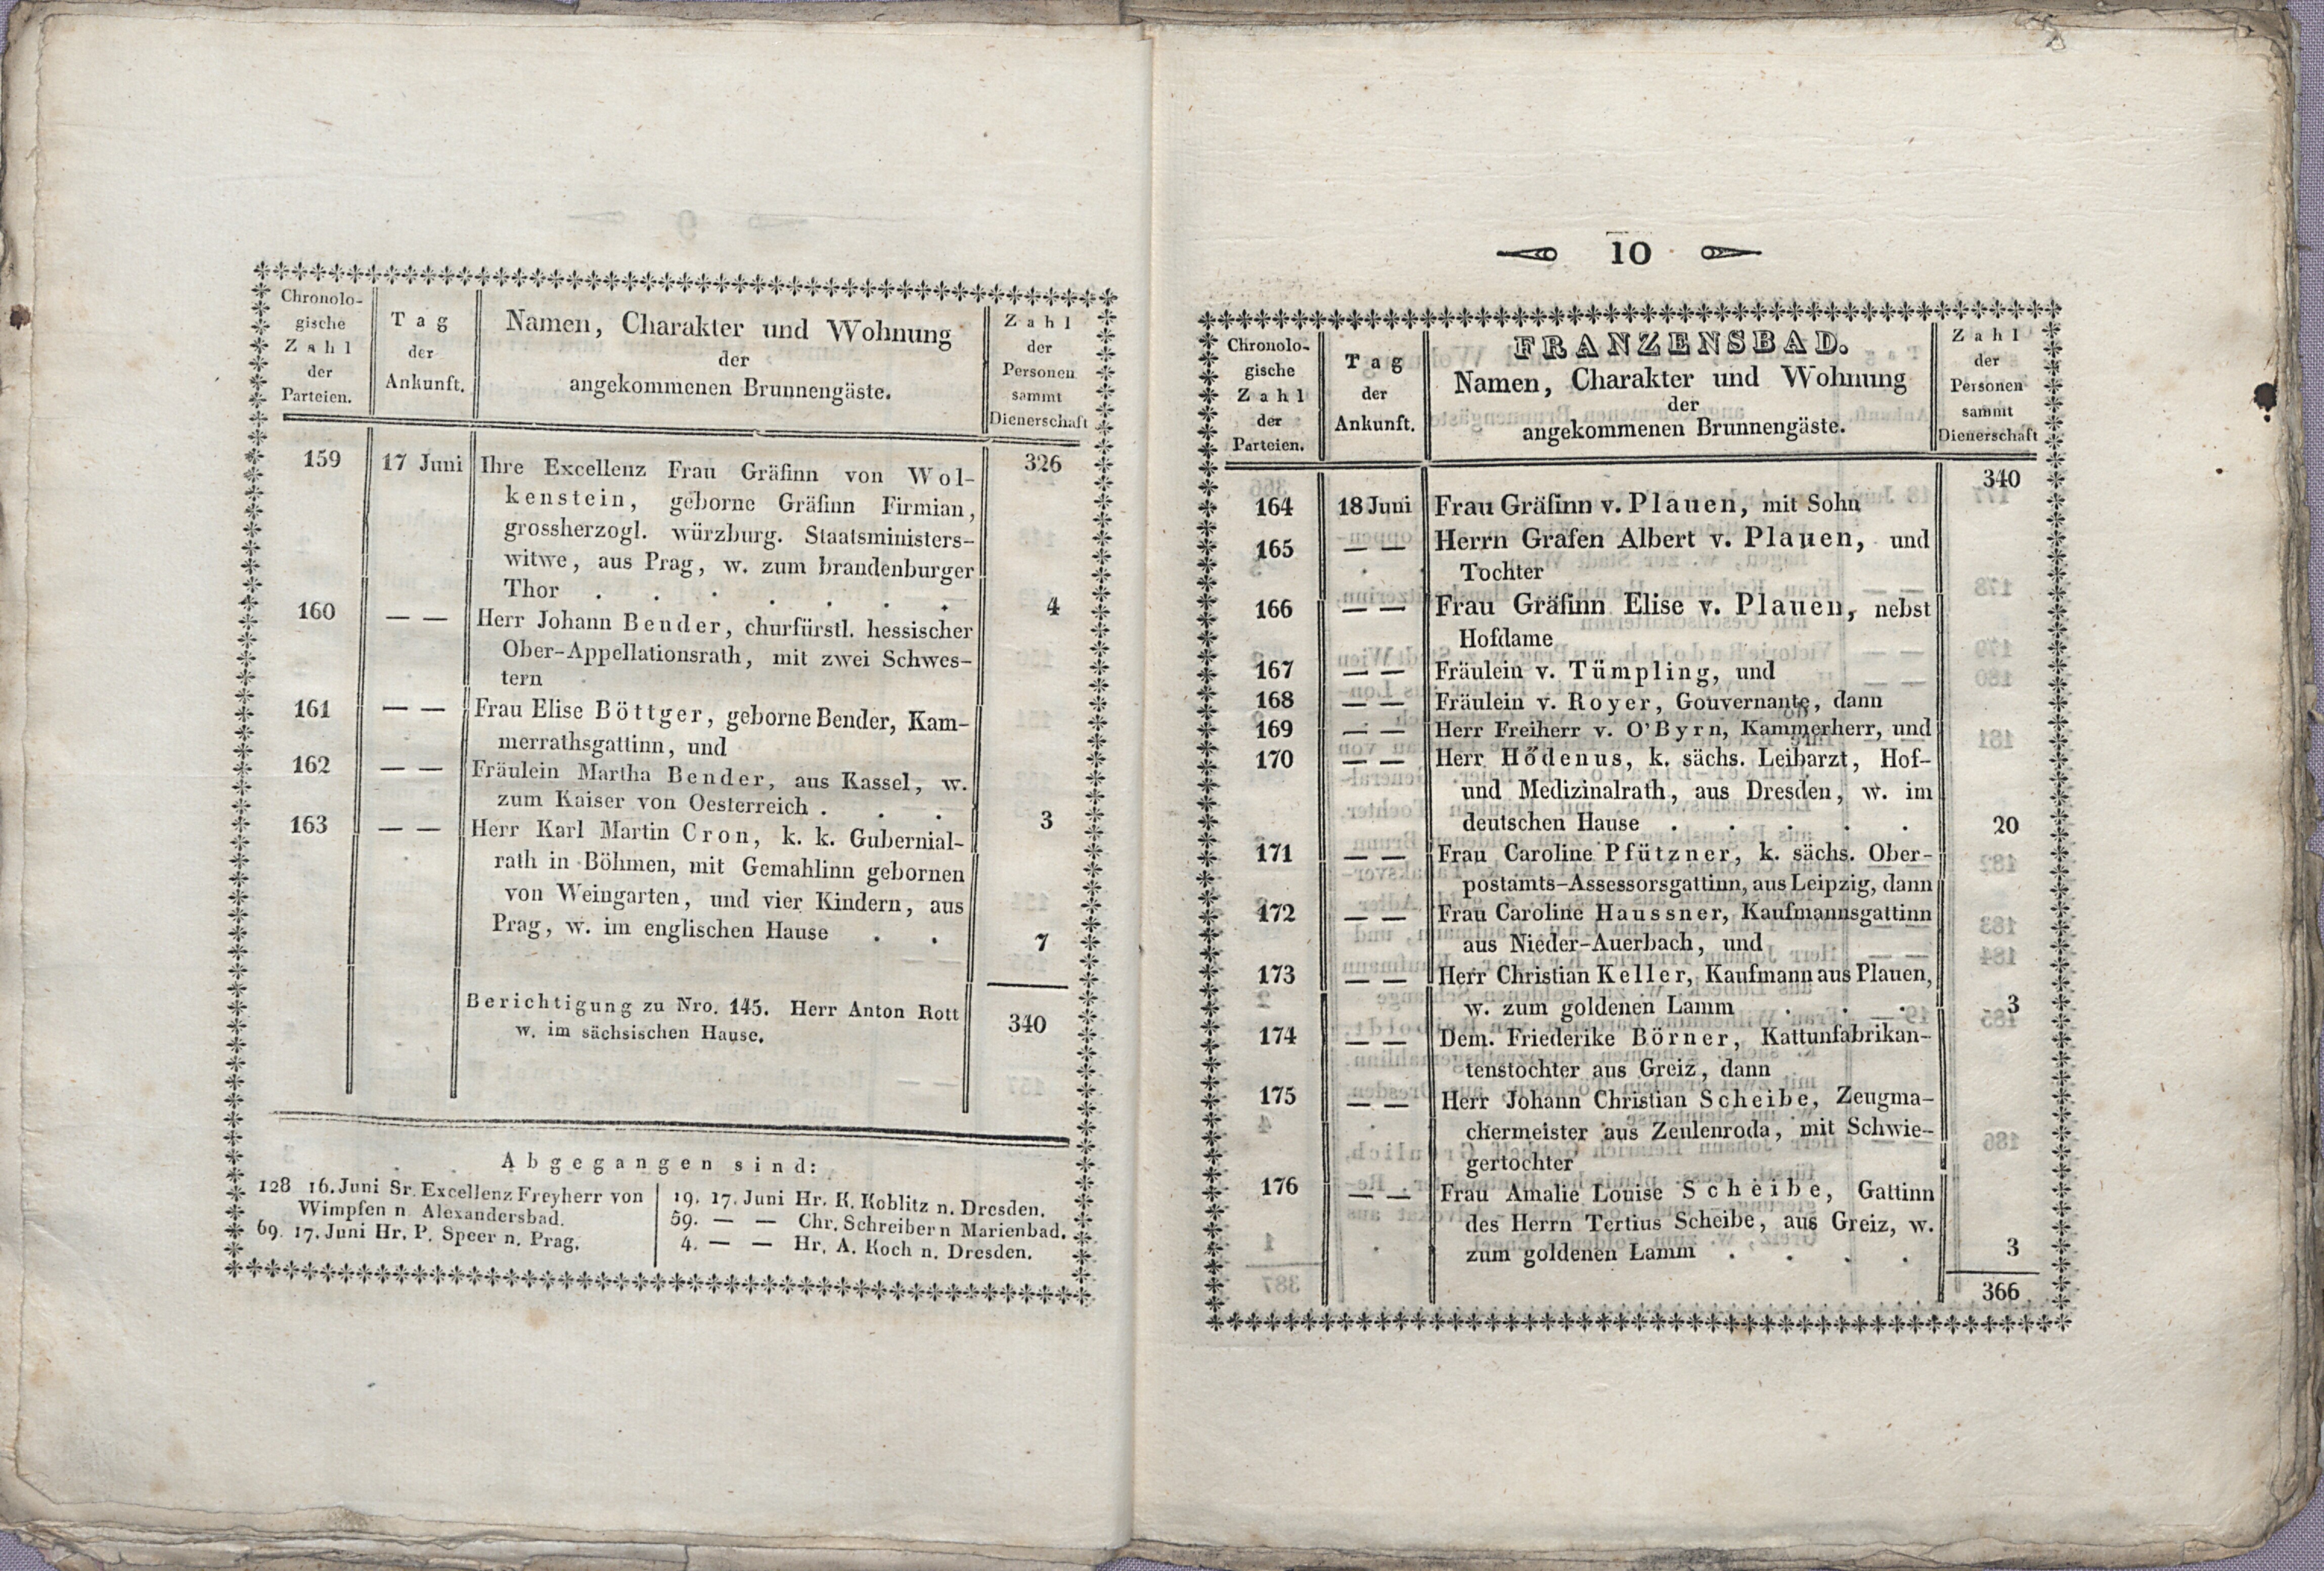 Chronolo-
gische
Zahl
der
Parteien.
Tag
der
Ankunft.
Namen, Charakter und Wohnung
der
angekommenen Brunnengäste.
Zahl
der
Personen
sammt
Dienerschaft
159 17 Juni Ihre Excellenz Frau Gräfinn von Wol- 326
kenstein, geborne Gräfinn Firmian,
grossherzogl. würzburg. Staatsministers-
witwe, aus Prag, w. zum brandenburger
Thor . . . . . . . 4
160 — — Herr Johann Bender, churfürstl. hessischer
Ober-Appellationsrath, mit zwei Schwes-
tern
161 — — Frau Elise Böttger, geborne Bender, Kam-
merrathsgattinn, und
162 — — Fräulein Martha Bender, aus Kassel, w.
zum Kaiser von Oesterreich . . . 3
163 — — Herr Karl Martin Cron, k. k. Gubernial-
rath in Böhmen, mit Gemahlinn gebornen
von Weingarten, und vier Kindern, aus
Prag, w. im englischen Hause . . 7
Berichtigung zu Nro. 145. Herr Anton Rott
w. im sächsischen Hause.
340
Abgegangen sind:
128 16. Juni Sr. Excellenz Freyherr von
Wimpfen n Alexandersbad.
69. 17. Juni Hr. P. Speer n. Prag.
19. 17. Juni Hr. K. Koblitz n. Dresden.
59. — — Chr. Schreiber n Marienbad.
4. — — Hr. A. Koch n. Dresden.
10
Chronolo-
gische
Zahl
der
Parteien.
Tag
der
Ankunft.
FRANZENSBAD.
Namen, Charakter und Wohnung
der
angekommenen Brunnengäste.
Zahl
der
Personen
sammt
Dienerschaft
340
164 18 Juni Frau Gräfinn v. Plauen, mit Sohn
165 — — Herrn Grafen Albert v. Plauen, und
Tochter
166 — — Frau Gräfinn Elise v. Plauen, nebst
Hofdame
167 — — Fräulein v. Tümpling, und
168 — — Fräulein v. Royer, Gouvernante, dann
169 — — Herr Freiherr v. O'Byrn, Kammerherr, und
170 — — Herr Hödenus, k. sächs. Leibarzt, Hof-
und Medizinalrath, aus Dresden, w. im
deutschen Hause . . . . . 20
171 — — Frau Caroline Pfützner, k. sächs. Ober-
postamts-Assessorsgattinn, aus Leipzig, dann
172 — — Frau Caroline Haussner, Kaufmannsgattinn
aus Nieder-Auerbach, und
173 — — Herr Christian Keller, Kaufmann aus Plauen,
w. zum goldenen Lamm . . . 3
174 — — Dem. Friederike Börner, Kattunfabrikan-
tenstochter aus Greiz, dann
175 — — Herr Johann Christian Scheibe, Zeugma-
chermeister aus Zeulenroda, mit Schwie-
gertochter
176 — — Frau Amalie Louise Scheibe, Gattinn
des Herrn Tertius Scheibe, aus Greiz, w.
zum goldenen Lamm . . . . 3
366